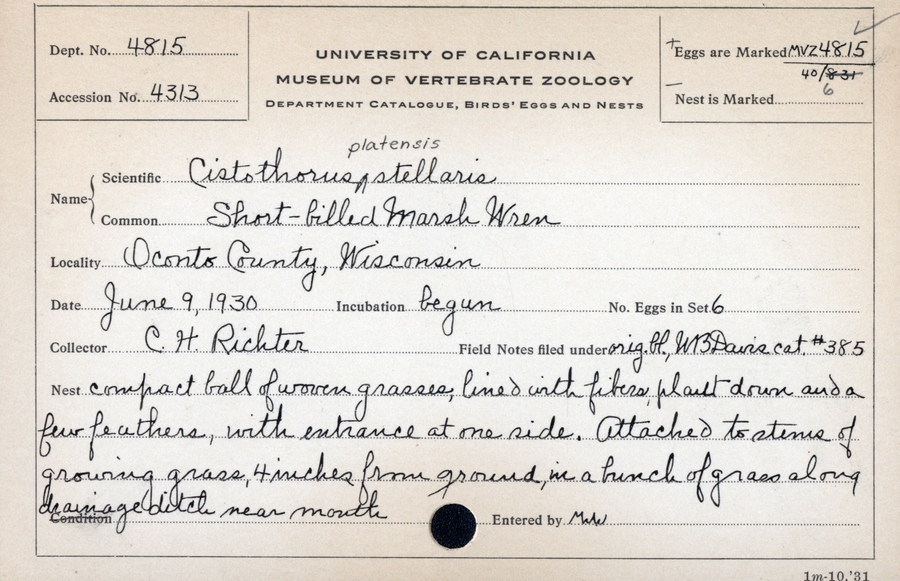 Dept. No. 4815
Accession No. 4313
UNIVERSITY OF CALIFORNIA
MUSEUM OF VERTEBRATE ZOOLOGY
DEPARTMENT CATALOGUE, BIRDS' EGGS AND NESTS
+ Eggs are Marked MVZ 4815
40/8-31
6
– Nest is Marked
platensis
Name Scientific Cistothorus ‸ stellaris
Common Short-billed Marsh Wren
Locality Oconto County, Wisconsin
Date June 9, 1930 Incubation begun No. Eggs in Set 6
Collector C. H. Richter Field Notes filed under orig. bl, WBDavis cat. #385
Nest compact ball of woven grasses, lined with fibers, plant down and a
few feathers, with entrance at one side. Attached to stems of
growing grass, 4 inches from ground, in a bunch of grass along
drainage ditch near mouth
Condition Entered by
1m-10,'31